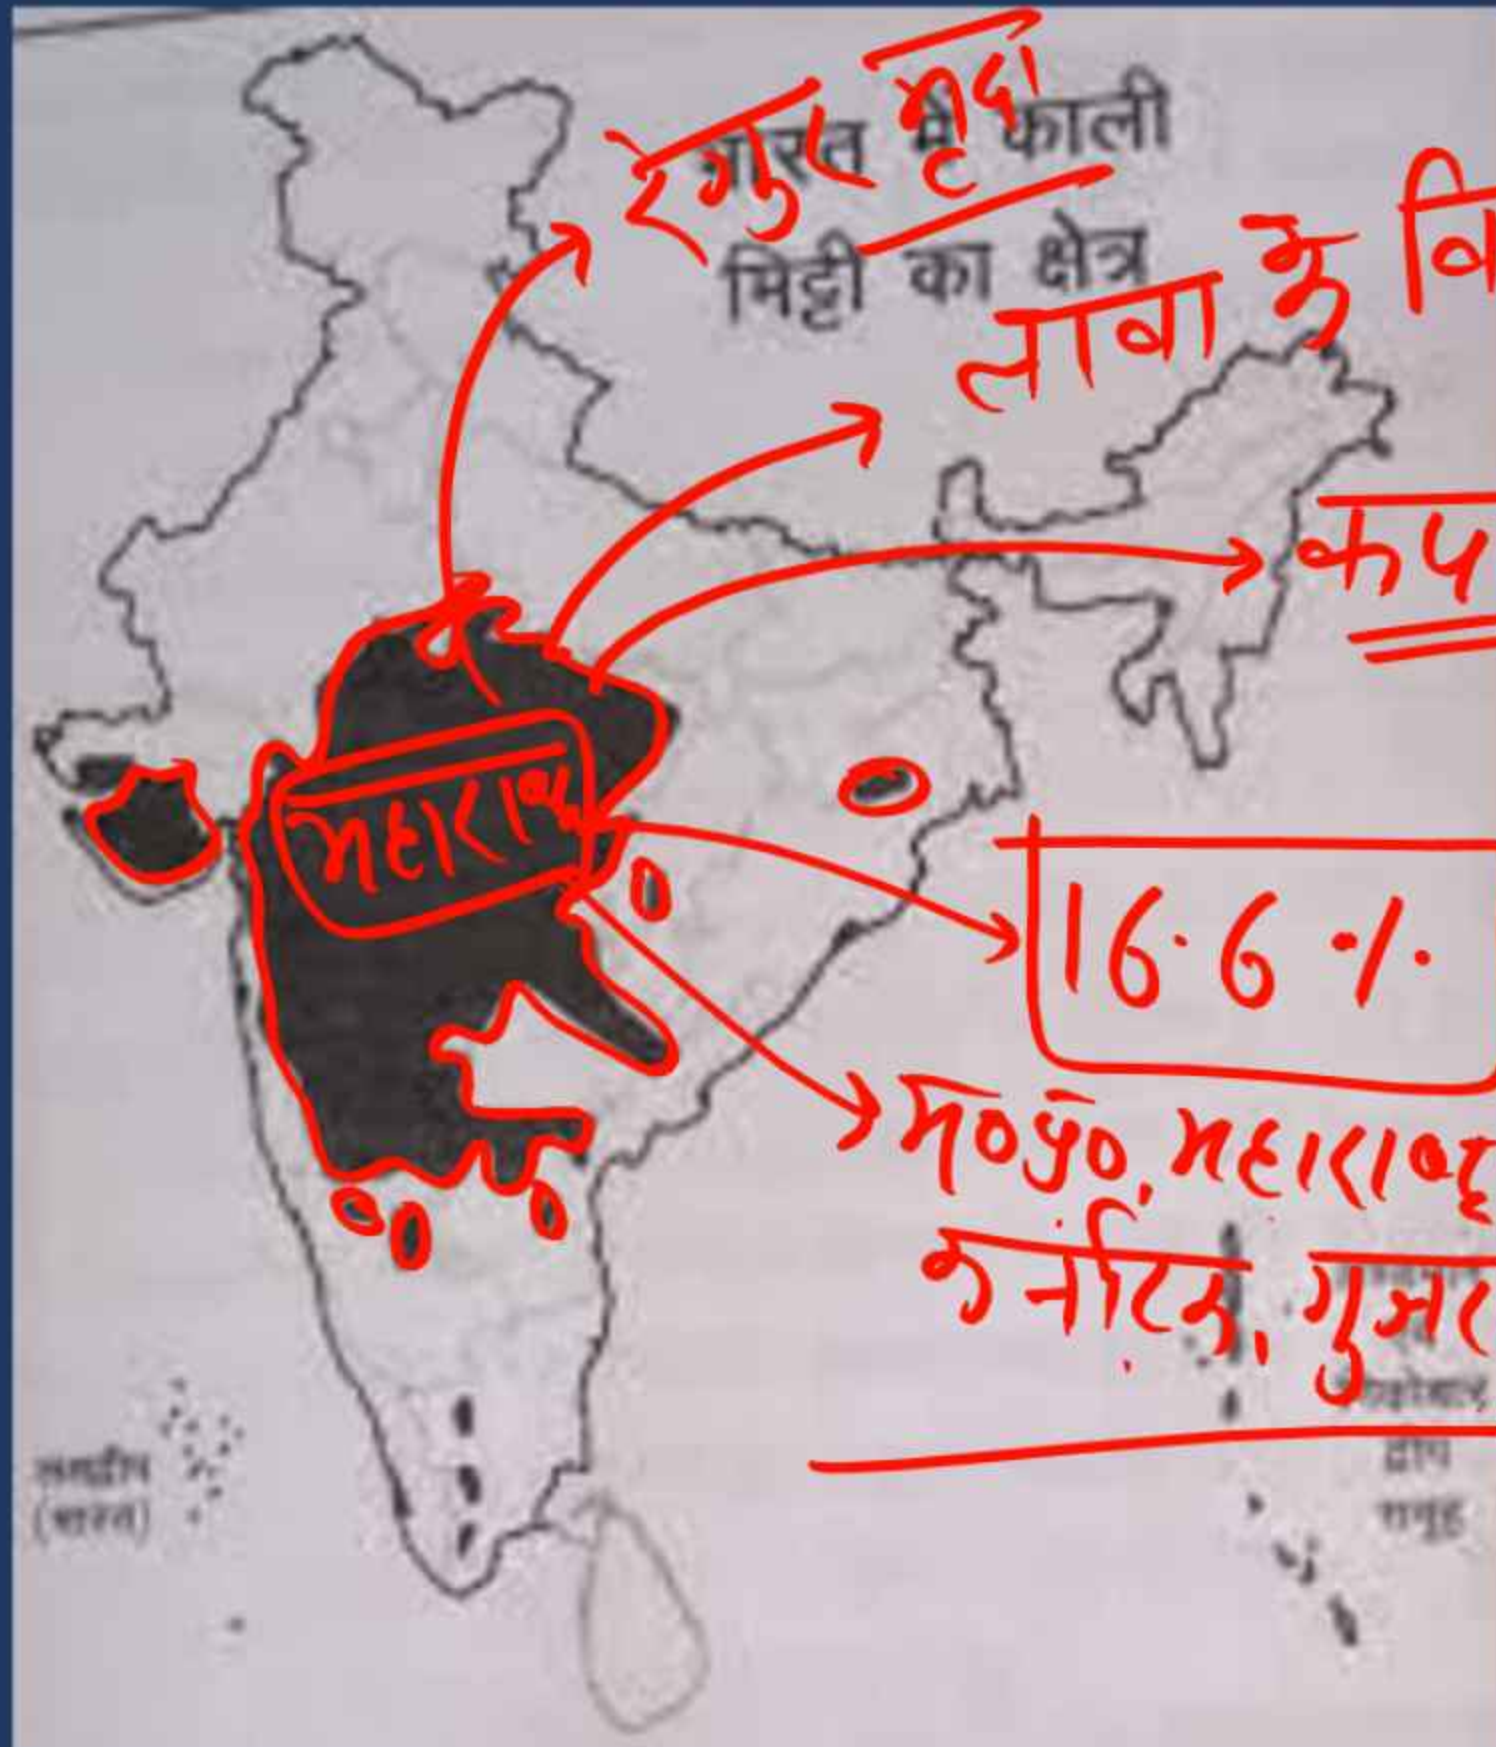 भारत में काली
मिट्टी का क्षेत्र
रेगुर मृदा
लावा के वि
कप
महाराष्ट्र
16.6 %
म०प्र०, महाराष्ट्र
कर्नाटक, गुजर
लक्षद्वीप
(भारत)
द्वीप
समूह